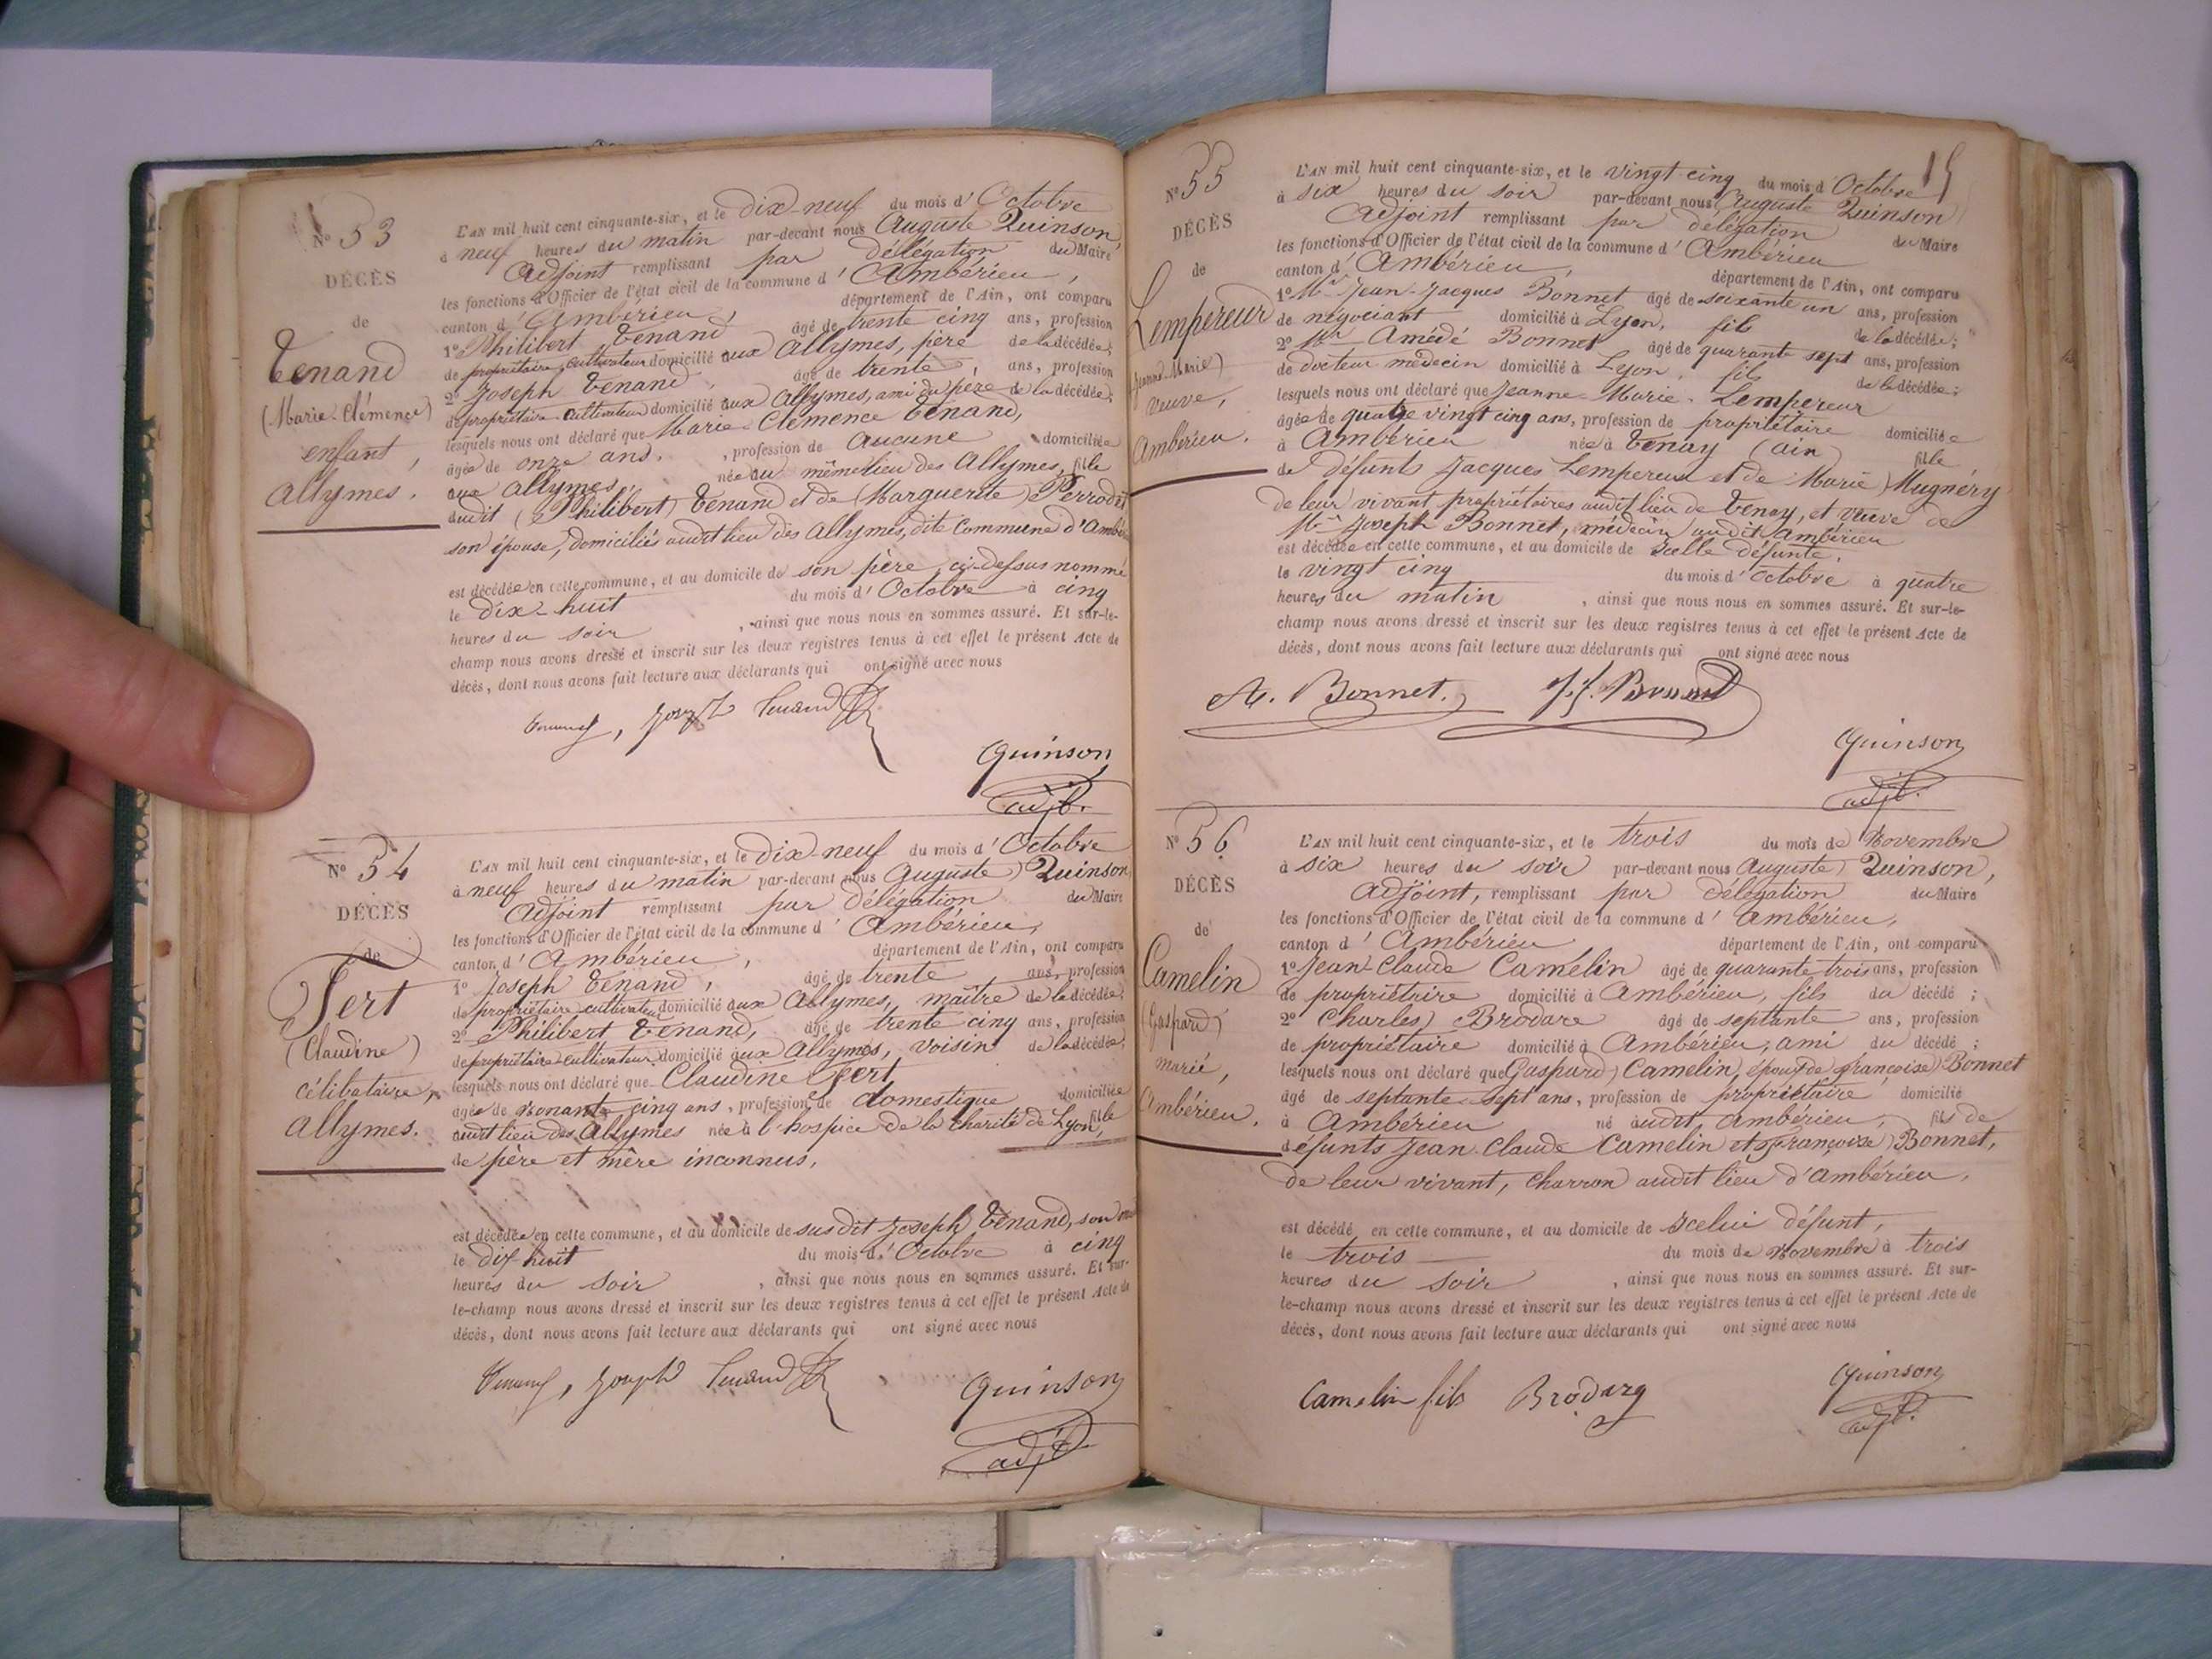 N° 53
DÉCÈS
de
Tenand
(Marie-Clémence)
enfant,
Allymes.
L'AN mil huit cent cinquante-six, et le dix-neuf du mois d'Octobre
à neuf heures du matin par-devant nous Auguste Quinson,
Adjoint remplissant par délégation du Maire
les fonctions d'Officier de l'état civil de la commune d'Ambérieu,
canton d'Ambérieu, département de l'Ain, ont comparu
1° Philibert Tenand âgé de trente cinq ans, profession
de propriétaire cultivateur domicilié aux Allymes, père de la décédée;
2° Joseph Tenand, âgé de trente, ans, profession
de propriétaire cultivateur domicilié aux Allymes, ami du père de la décédée;
lesquels nous ont déclaré que Marie-Clémence Tenand,
âgée de onze ans, profession de Aucune domiciliée
aux Allymes, née au même lieu des Allymes, fille
dudit (Philibert) Tenand et de (Marguerite) Perrodet
son épouse, domiciliés audit lieu des Allymes, dite Commune d'Ambé
est décédée en cette commune, et au domicile de son père, ci-dessus nommé
le dix-huit du mois d'Octobre à cinq
heures du soir, ainsi que nous nous en sommes assuré. Et sur-le-
champ nous avons dressé et inscrit sur les deux registres tenus à cet effet le présent Acte de
décès, dont nous avons fait lecture aux déclarants qui ont signé avec nous
Joseph Tenand
Quinson
adjt.
N° 54
DÉCÈS
de
Jert
(Claudine)
célibataire,
Allymes.
L'AN mil huit cent cinquante-six, et le dix-neuf du mois d'Octobre
à neuf heures du matin par-devant nous Auguste Quinson
Adjoint remplissant par délégation du Maire
les fonctions d'Officier de l'état civil de la commune d'Ambérieu,
canton d'Ambérieu, département de l'Ain, ont comparu
1° Joseph Tenand, âgé de trente ans, profession
de propriétaire cultivateur domicilié aux Allymes, maître de la décédée;
2° Philibert Tenand, âgé de trente cinq ans, profession
de propriétaire-cultivateur domicilié aux Allymes, voisin de la décédée;
lesquels nous ont déclaré que Claudine Jert
âgée de nonante cinq ans, profession de domestique domiciliée
audit lieu des Allymes née à l'hospice de la Charité de Lyon, fille
de père et mère inconnus,
est décédée en cette commune, et au domicile de susdit Joseph Tenand, son
le dix-huit du mois d'Octobre à cinq
heures du soir, ainsi que nous nous en sommes assuré. Et sur-
le-champ nous avons dressé et inscrit sur les deux registres tenus à cet effet le présent Acte de
décès, dont nous avons fait lecture aux déclarants qui ont signé avec nous
Joseph Tenand
Quinson
adjt.
15
N° 55
DÉCÈS
de
Lempereur
(Jeanne-Marie)
veuve,
Ambérieu.
L'AN mil huit cent cinquante-six, et le vingt-cinq du mois d'Octobre
à six heures du soir par-devant nous Auguste Quinson
Adjoint remplissant par délégation du Maire
les fonctions d'Officier de l'état civil de la commune d'Ambérieu
canton d'Ambérieu, département de l'Ain, ont comparu
1° Mr Jean-Jacques Bonnet âgé de soixante un ans, profession
de négociant domicilié à Lyon, fils de la décédée;
2° Mr Amédé Bonnet âgé de quarante sept ans, profession
de docteur médecin domicilié à Lyon, fils de la décédée;
lesquels nous ont déclaré que Jeanne-Marie-Lempereur
âgée de quatre vingt cinq ans, profession de propriétaire domiciliée
à Ambérieu née à Tenay (ain) fille
de défunts Jacques Lempereur et de Marie Mugnéry
de leur vivant propriétaires audit lieu de Tenay, et veuve de
Mr Joseph Bonnet, médecin audit Ambérieu
est décédée en cette commune, et au domicile de Icelle défunte.
le vingt cinq du mois d'Octobre à quatre
heures du matin, ainsi que nous nous en sommes assuré. Et sur-le-
champ nous avons dressé et inscrit sur les deux registres tenus à cet effet le présent Acte de
décès, dont nous avons fait lecture aux déclarants qui ont signé avec nous
A. Bonnet. J.J. Bonnet
Quinson
adjt.
N° 56
DÉCÈS
de
Camelin
(Gaspard)
marié,
Ambérieu.
L'AN mil huit cent cinquante-six, et le trois du mois de Novembre
à six heures du soir par-devant nous Auguste Quinson,
Adjoint, remplissant par délégation du Maire
les fonctions d'Officier de l'état civil de la commune d'Ambérieu,
canton d'Ambérieu département de l'Ain, ont comparu
1° Jean-Claude Camelin âgé de quarante trois ans, profession
de propriétaire domicilié à Ambérieu, fils du décédé;
2° Charles Brodare âgé de septante ans, profession
de propriétaire domicilié à Ambérieu, ami du décédé;
lesquels nous ont déclaré que Gaspard Camelin, époux de françoise Bonnet
âgé de septante-sept ans, profession de propriétaire domicilié
à Ambérieu né audit Ambérieu, fils de
défunts Jean-Claude Camelin et françoise Bonnet,
de leur vivant, Charron audit lieu d'Ambérieu,
est décédé en cette commune, et au domicile de Icelui défunt,
le trois du mois de Novembre à trois
heures du soir, ainsi que nous nous en sommes assuré. Et sur-
le-champ nous avons dressé et inscrit sur les deux registres tenus à cet effet le présent Acte de
décès, dont nous avons fait lecture aux déclarants qui ont signé avec nous
Camelin fils Brodarg
Quinson
adjt.